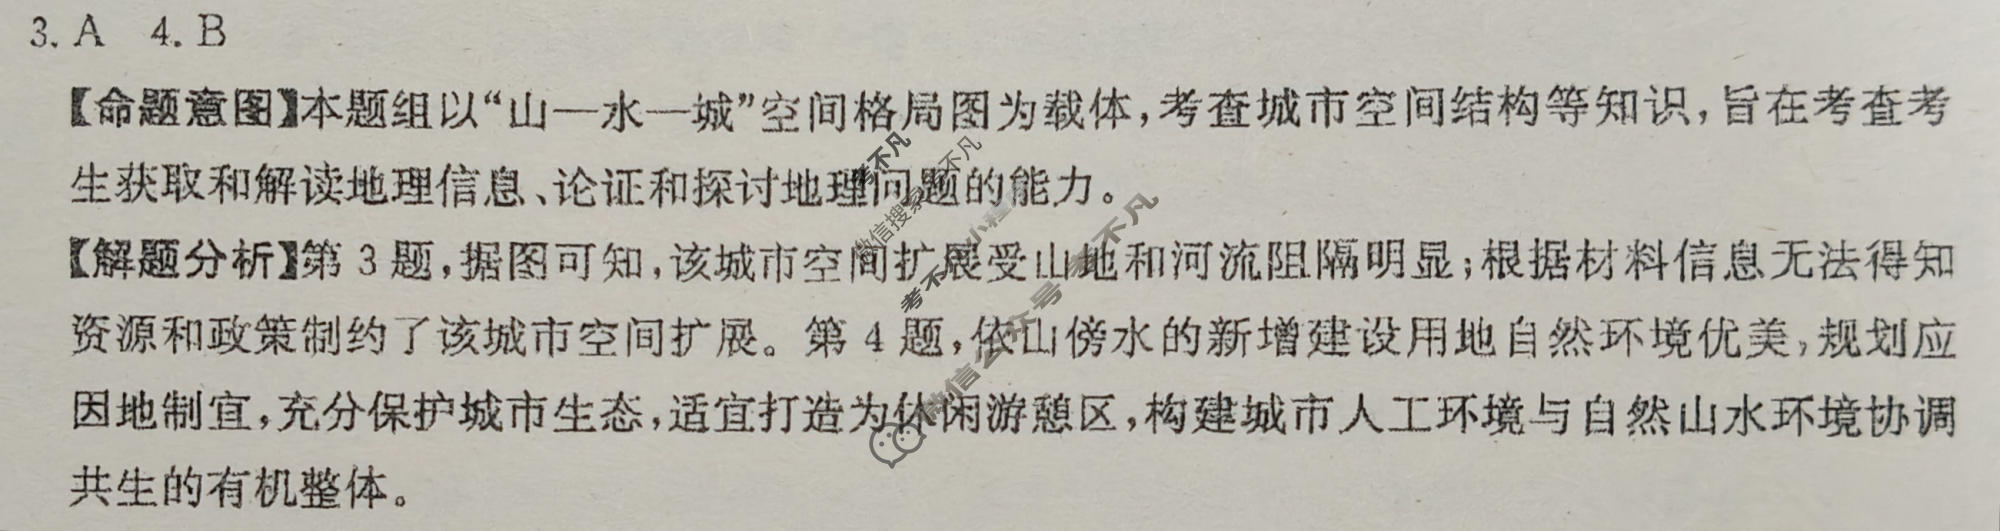 3. A 4. B
【命题意图】本题组以“山—水—城”空间格局图为载体,考查城市空间结构等知识,旨在考查考
生获取和解读地理信息、论证和探讨地理问题的能力。
【解题分析】第 3 题,据图可知,该城市空间扩展受山地和河流阻隔明显;根据材料信息无法得知
资源和政策制约了该城市空间扩展。第 4 题,依山傍水的新增建设用地自然环境优美,规划应
因地制宜,充分保护城市生态,适宜打造为休闲游憩区,构建城市人工环境与自然山水环境协调
共生的有机整体。